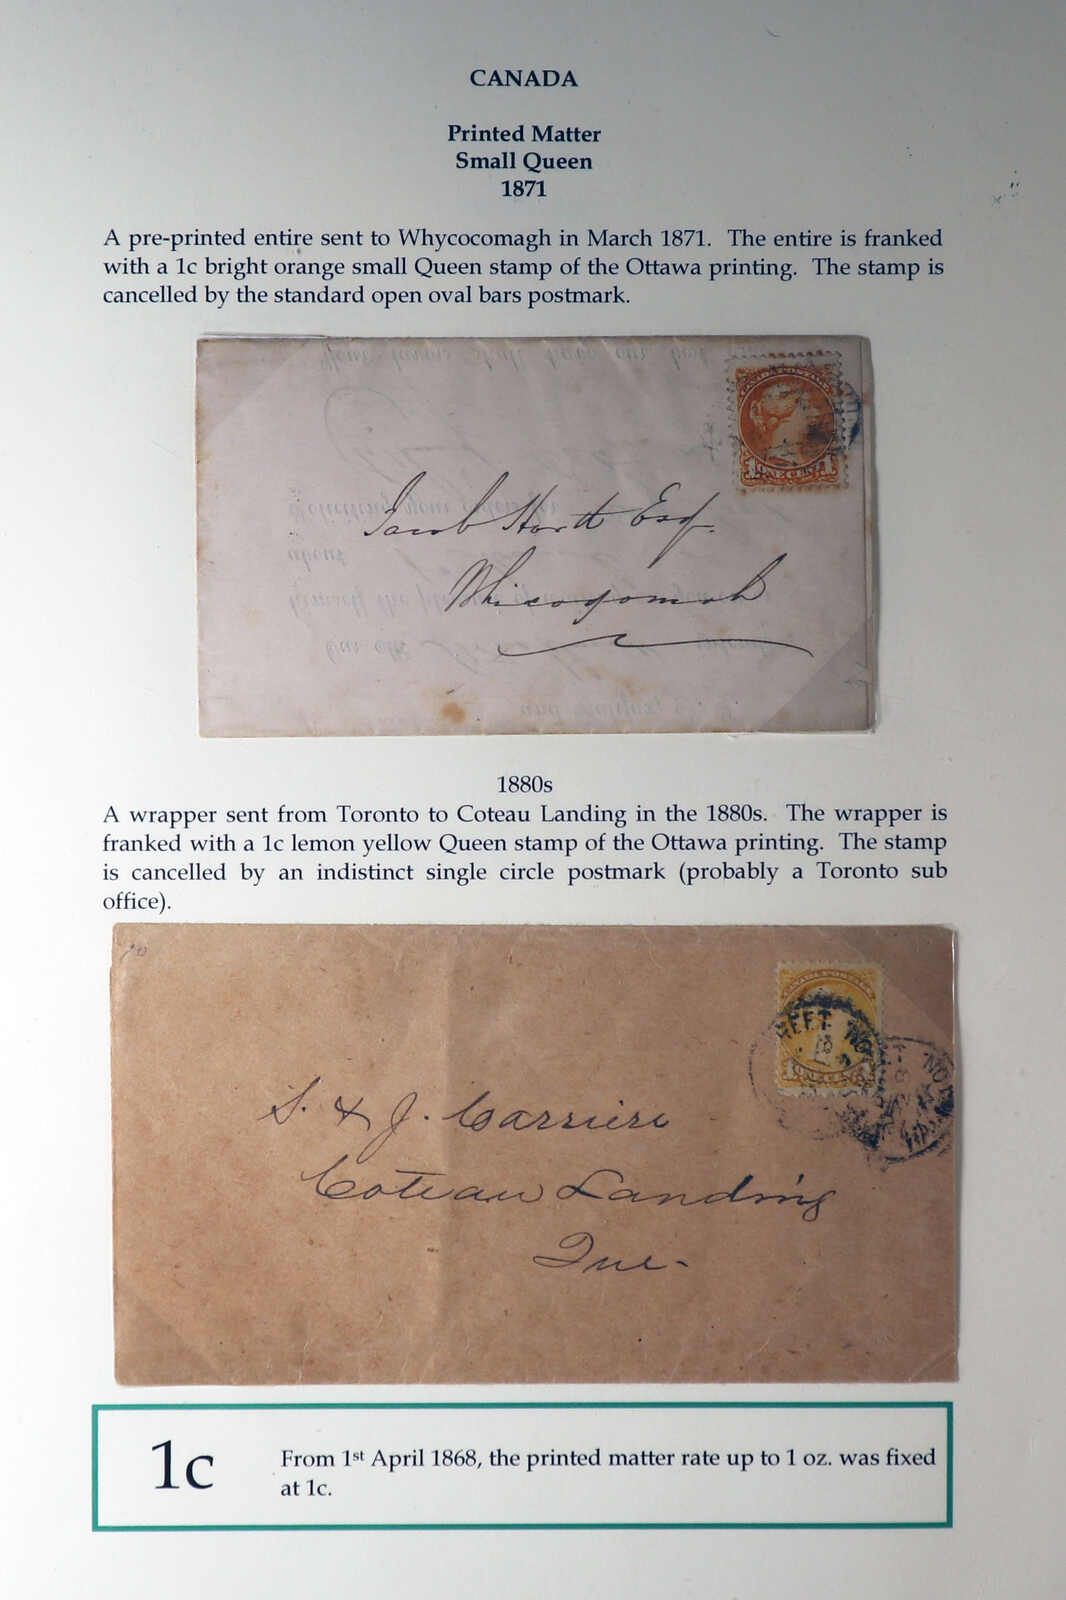 CANADA
Printed Matter
Small Queen
1871
A pre-printed entire sent to Whycocomagh in March 1871. The entire is franked
with a 1c bright orange small Queen stamp of the Ottawa printing. The stamp is
cancelled by the standard open oval bars postmark.
CANADA POSTAGE
ONE CENT
Jacob Hartt Esq.
Whicogomah
1880s
A wrapper sent from Toronto to Coteau Landing in the 1880s. The wrapper is
franked with a 1c lemon yellow Queen stamp of the Ottawa printing. The stamp
is cancelled by an indistinct single circle postmark (probably a Toronto sub
office).
CANADA POSTAGE
ONE CENT
S. & J. Carriere
Coteau Landing
Que-
1c
From 1st April 1868, the printed matter rate up to 1 oz. was fixed
at 1c.